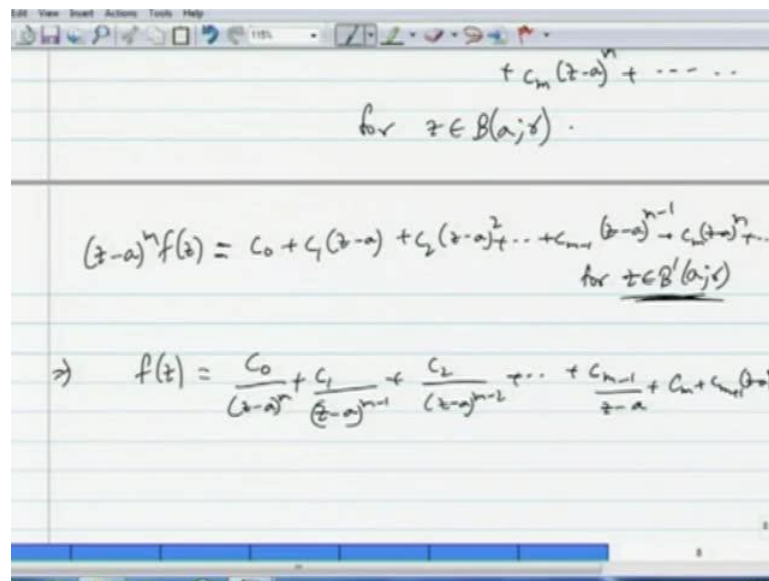 Edit View Insert Actions Tools Help
115%
+ c_m (z-a)^m + ----- ..
for z ∈ B(a;r) .
(z-a)^m f(z) = c_0 + c_1(z-a) + c_2(z-a)^2 + ... + c_{m-1} (z-a)^{m-1} + c_m(z-a)^m + ...
for z ∈ B'(a;r)
⇒ f(z) = c_0/(z-a)^m + c_1/(z-a)^{m-1} + c_2/(z-a)^{m-2} + ... + c_{m-1}/(z-a) + c_m + c_{m+1}(z-a)
8